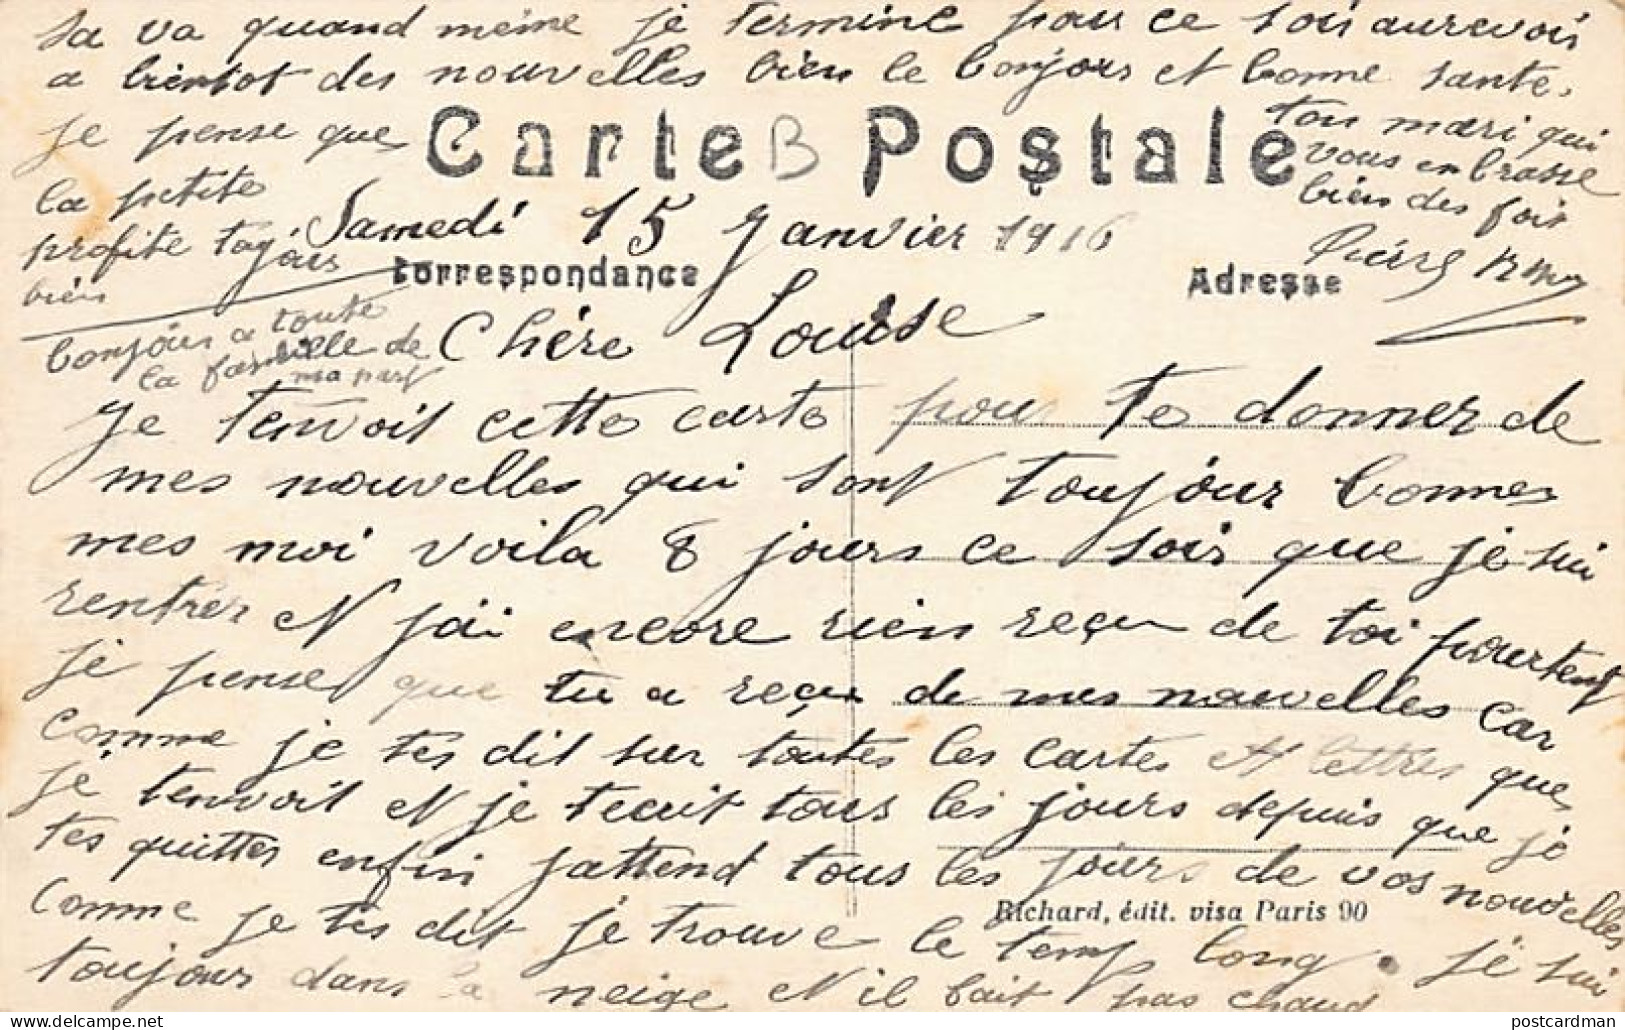 Carte B Postale
Samedi 15 Janvier 1916
Correspondance
Adresse
Chére Louise
Je tenvoit cette carte pour te donner de
mes nouvelles qui sont toujour bonnes
mes moi voila 8 jours ce soir que je sui
rentrer et jai encore rien reçu de toi pourtent
je pense que tu a reçu de mes nouvelles car
comme je tes dit sur toutes les cartes et lettres que
je tenvoit et je tecrit tous les jours depuis que je
tes quitter enfin jattend tous les jours de vos nouvelles
Comme je tes dit je trouve le temp long. je sui
toujour dans la neige et il fait pas chaud
Richard, édit. visa Paris 90
sa va quand meine je termine pour ce soir aurevoir
a bientot des nouvelles bien le bonjour et bonne sante.
ton mari qui
vous enbrasse
bien des fois
Pierre
je pense que
la petite
profite toujour
bien
bonjour a toute
la famille de
ma part
postcardman